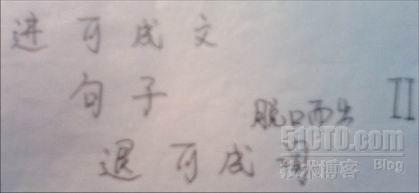 进可成文
句子
脱口而出 II
退可成词
51CTO.com
技术博客 Blog